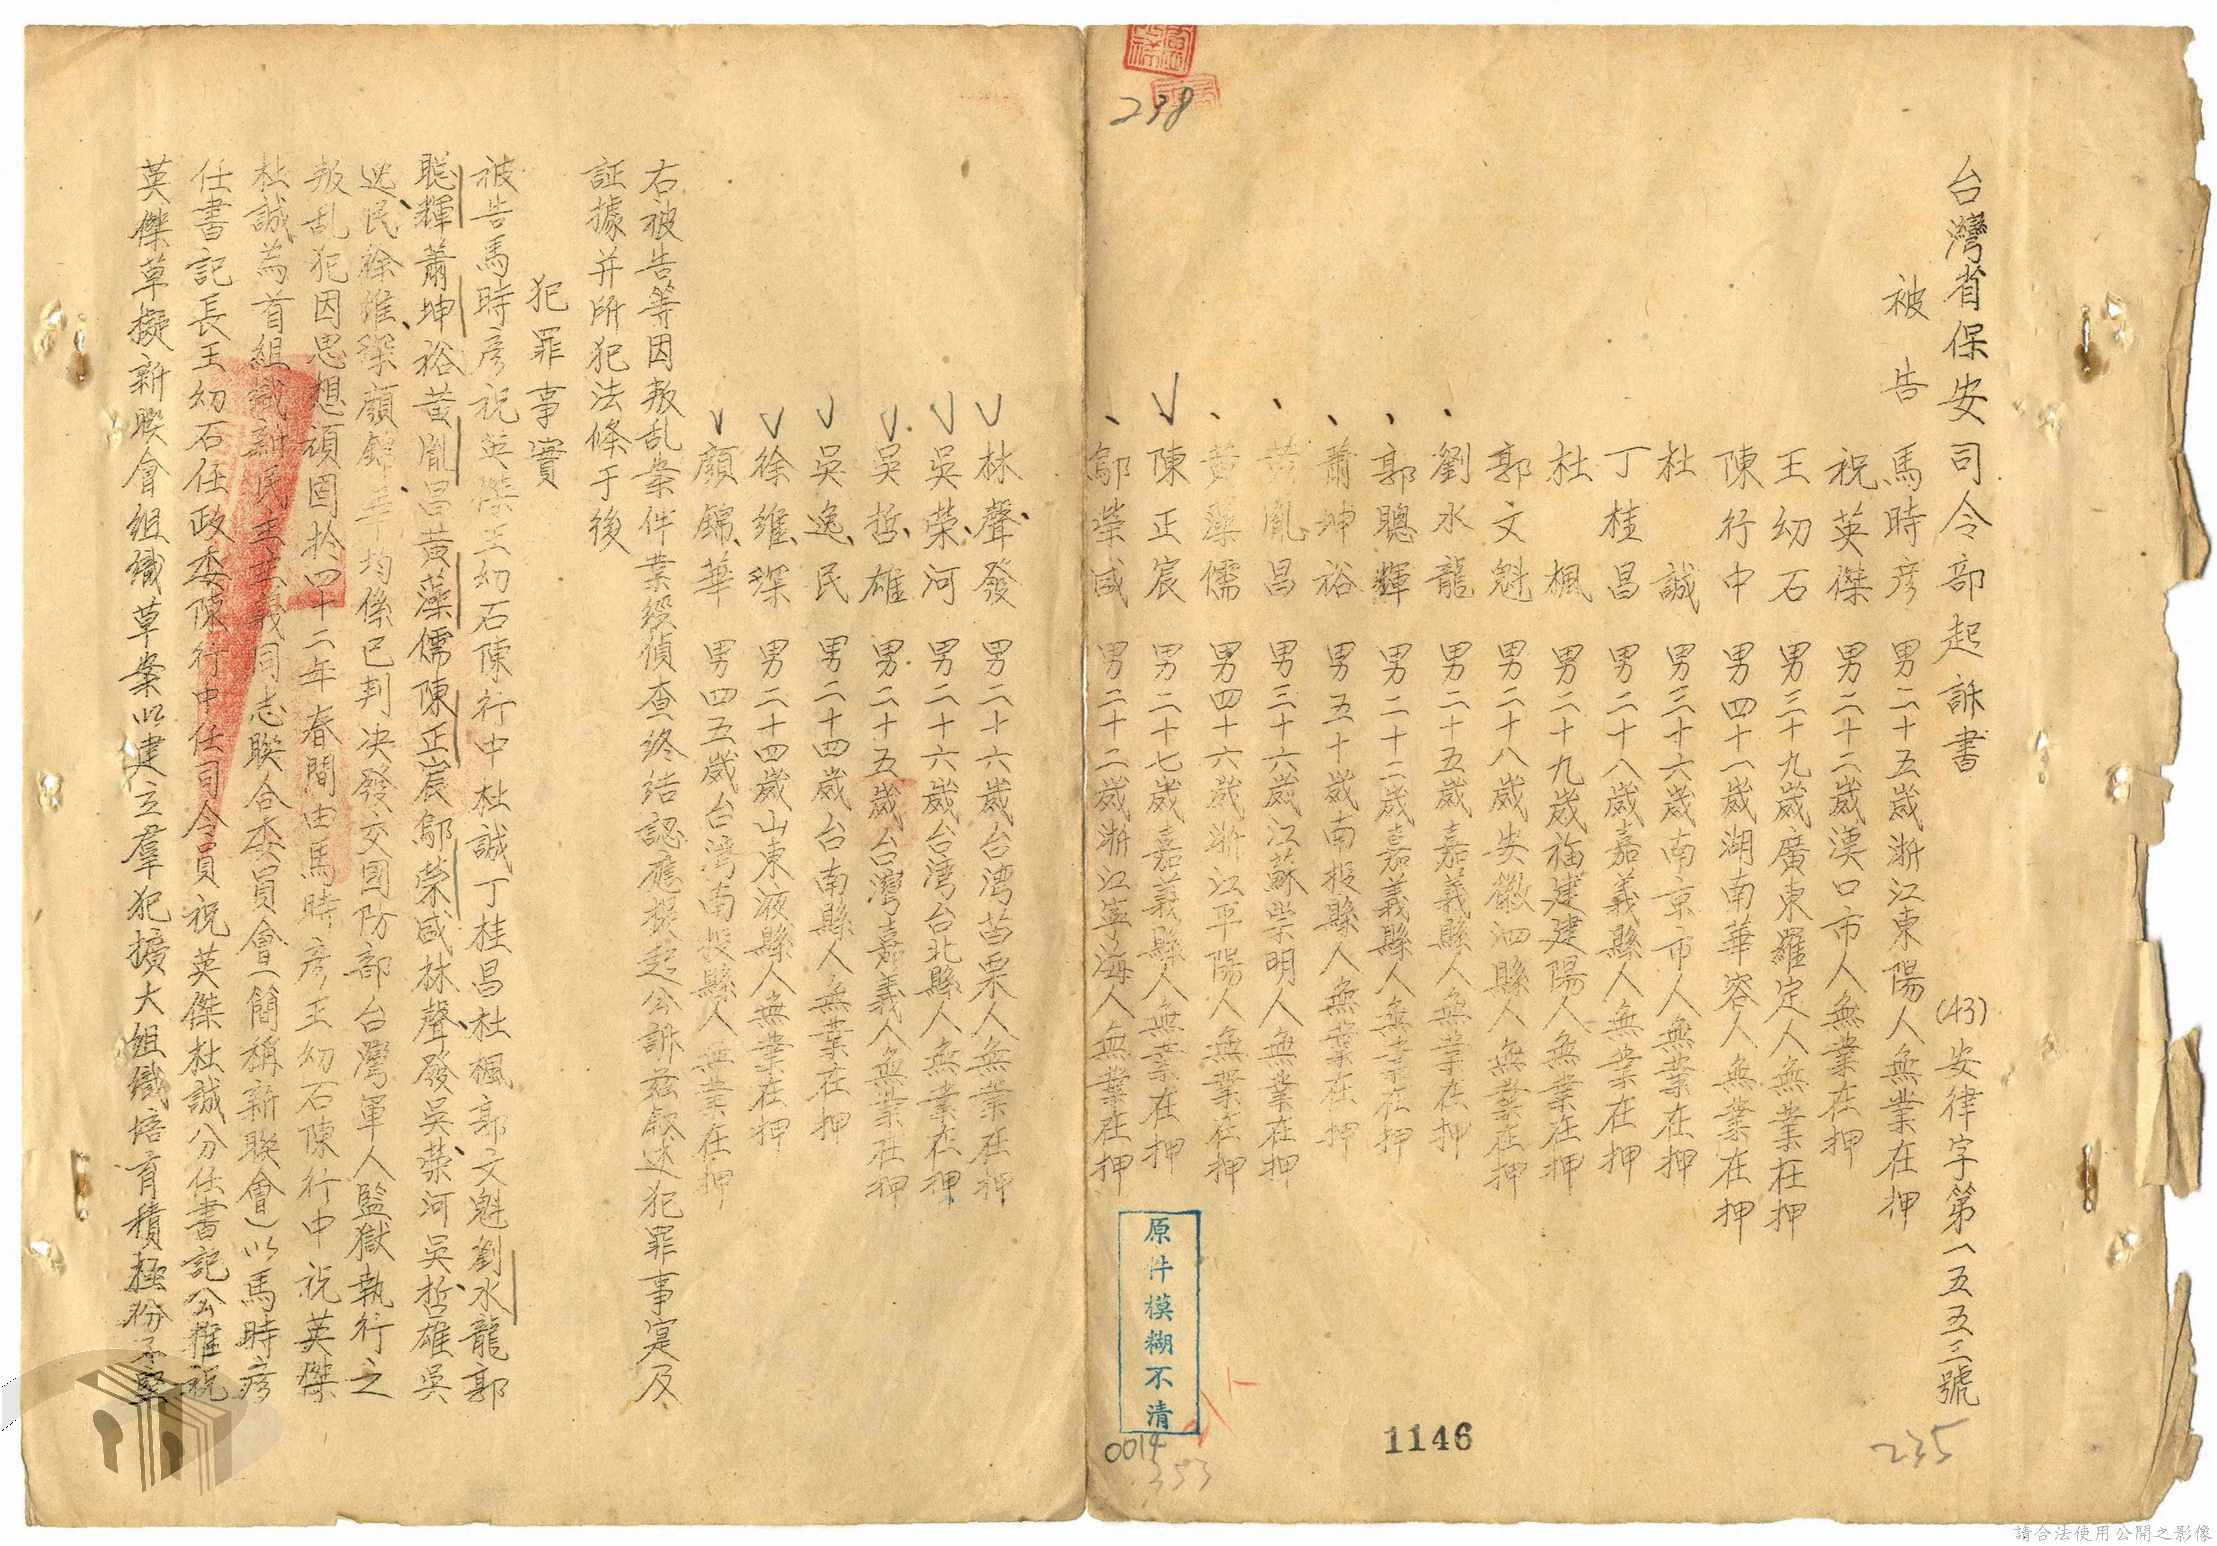 台灣省保安司令部起訴書 (43)安律字第一五五三號
被告 馬時彥 男二十五歲浙江東陽人無業在押
祝英傑 男二十二歲漢口市人無業在押
王幼石 男三十九歲廣東羅定人無業在押
陳行中 男四十一歲湖南華容人無業在押
杜誠 男三十六歲南京市人無業在押
丁桂昌 男二十八歲嘉義縣人無業在押
杜楓 男二十九歲福建建陽人無業在押
郭文魁 男二十八歲安徽泗縣人無業在押
劉水龍 男二十五歲嘉義縣人無業在押
郭聰輝 男二十二歲嘉義縣人無業在押
蕭坤裕 男五十歲南投縣人無業在押
黄胤昌 男三十六歲江蘇崇明人無業在押
黄藻儒 男四十六歲浙江平陽人無業在押
陳正宸 男二十七歲嘉義縣人無業在押
鄔榮咸 男二十二歲浙江寧海人無業在押
238
原件模糊不清
0014
353
1146
235
林聲發 男二十六歲台湾苗栗人無業在押
吳荣河 男二十六歲台湾台北縣人無業在押
吳哲雄 男二十五歲台灣嘉義人無業在押
吳逸民 男二十四歲台南縣人無業在押
徐維琛 男二十四歲山東掖縣人無業在押
顏錦華 男四五歲台湾南投縣人無業在押
右被告等因叛乱案件業經偵查終結認應提起公訴茲敘述犯罪事寔及
証據并所犯法條于後
犯罪事實
被告馬時彥祝英傑王幼石陳行中杜誠丁桂昌杜楓郭文魁劉水龍郭
聪輝蕭坤裕黄胤昌黄藻儒陳正宸鄔榮咸林聲發吳荣河吳哲雄吳
逸民徐維琛顏錦華均係已判决發交囯防部台灣軍人監獄執行之
叛乱犯因思想頑固扵四十二年春間由馬時彥王幼石陳行中祝英傑
杜誠為首組織新民主主義同志聯合委員會(簡稱新聯會)以馬時彥
任書記長王幼石任政委陳行中任司令員祝英傑杜誠分任書記公推祝
英傑草擬新聯會組織草案以建立羣犯擴大組織培育積極份子堅
請合法使用公開之影像